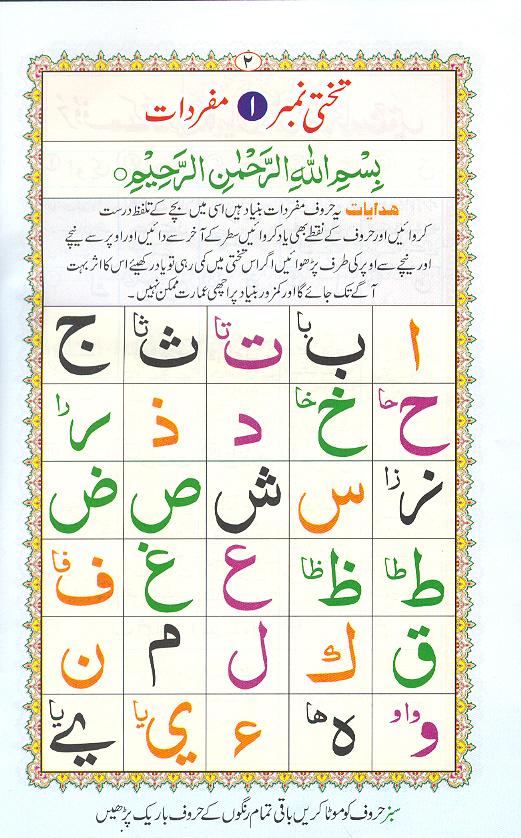 ۲
تختی نمبر ۱ مفردات
بِسْمِ اللهِ الرَّحْمٰنِ الرَّحِيْمِ ○
ھدایات یہ حروف مفردات بنیاد ہیں اسی میں بچے کے تلفظ درست
کروائیں اور حروف کے نقطے بھی یاد کروائیں سطر کے آخر سے دائیں اور اوپر سے نیچے
اور نیچے سے اوپر کی طرف پڑھوائیں اگر اس تختی میں کمی رہی تو یاد رکھیئے اس کا اثر بہت
آگے تک جائے گا اور کمزور بنیاد پر اچھی عمارت ممکن نہیں۔
ا ب با ت تا ث ثا ج
ح حا خ خا د ذ ر را
ز زا س ش ص ض
ط طا ظ ظا ع غ ف فا
ق ك ل م ن
و واو ہ ھا ء ي یا ے یا
سبز حروف کو موٹا کریں باقی تمام رنگوں کے حروف باریک پڑھیں